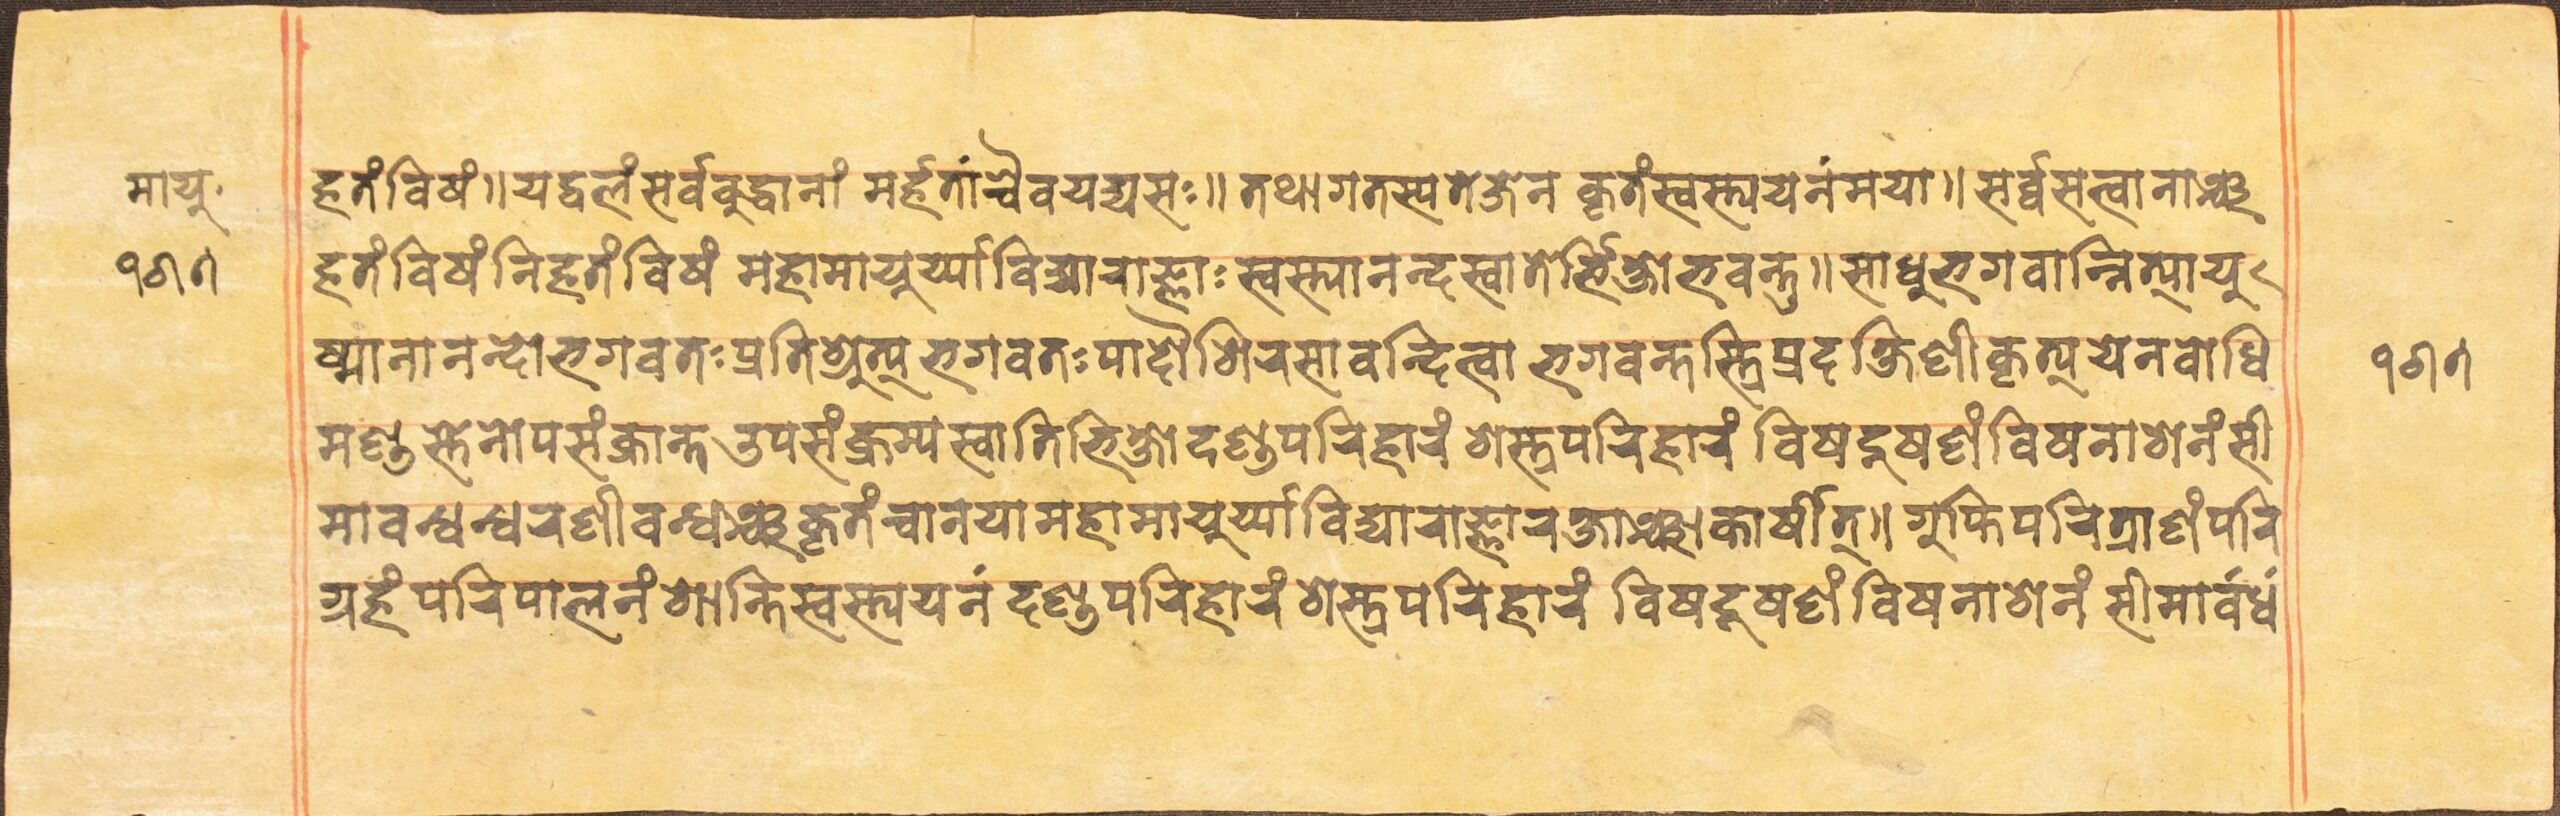 मायु॰
हतंविषं॥यद्वलंसर्वबुद्धानां मर्हतांच्चैवयद्यसः॥तथागतस्यतेजेन कृतंस्वस्त्ययेनंमया॥सर्व्वसत्वानाञ्च
१७७ हतंविषंनिहतंविषं महामायुर्य्याविद्याराज्ञाः स्वस्त्यानन्दस्वातेर्भिक्षोभवन्तु॥साधुभगवान्नित्यायु
ष्मानानन्दोभगवतःप्रतिश्रुत्य भगवतःपादौशिरसावन्दित्वा भगवन्तस्त्रिप्रदक्षिणीकृत्य येनबोधि १७७
मण्डस्तेनोपसंक्रान्तउपसंक्रम्यस्वातिभिक्षोदण्डपरिहारं शस्त्रपरिहारं विषदूषणंविषनाशनंसी
मावन्धन्धरणीवन्धञ्चकृतंच्चानयामहामायुर्य्याविद्याराज्ञारक्षाञ्चाकार्षीत्॥गुप्तिपरित्राणंपरि
ग्रहंपरिपालनंशान्तिस्वस्त्ययनं दण्डपरिहारंशस्त्रपरिहारं विषदूषणंविषनाशनं सीमावंधं